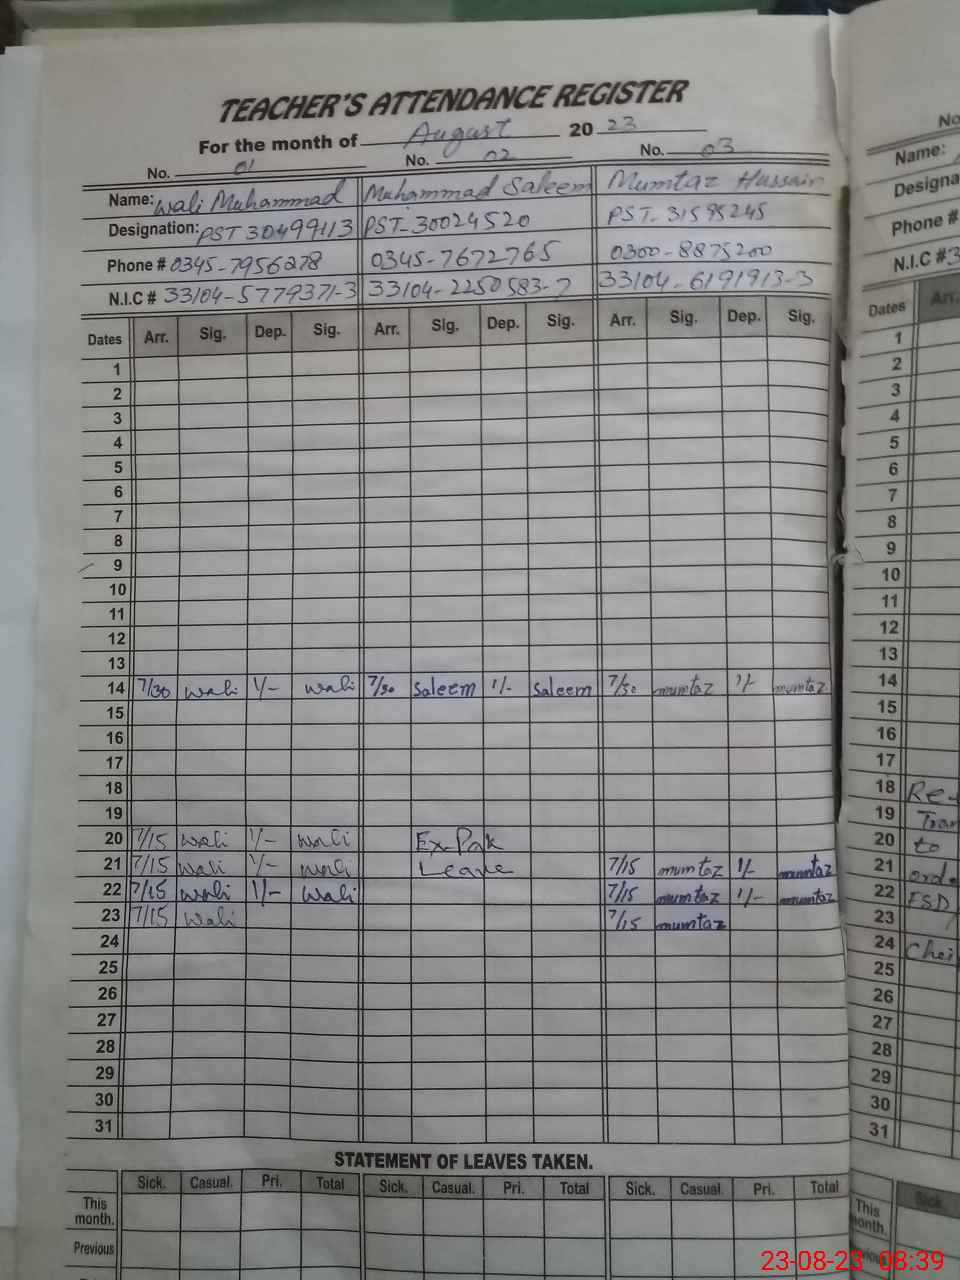 TEACHER'S ATTENDANCE REGISTER
For the month of August 20 23
No. 01 No. 02 No. 03
Name: Wali Muhammad Muhammad Saleem Mumtaz Hussain
Designation: PST 30499113 PST-30024520 PST-31595245
Phone # 0345-7956278 0345-7672765 0300-8875200
N.I.C # 33104-5779371-3 33104-2250583-7 33104-6191913-3
Dates Arr. Sig. Dep. Sig. Arr. Sig. Dep. Sig. Arr. Sig. Dep. Sig.
1
2
3
4
5
6
7
8
9
10
11
12
13
14 7/30 Wali 1/- Wali 7/30 Saleem 1/- Saleem 7/30 mumtaz 1/- mumtaz
15
16
17
18
19
20 7/15 Wali 1/- Wali Ex-Pak
21 7/15 Wali 1/- Wali Leave 7/15 mumtaz 1/- mumtaz
22 7/15 Wali 1/- Wali 7/15 mumtaz 1/- mumtaz
23 7/15 Wali 7/15 mumtaz
24
25
26
27
28
29
30
31
STATEMENT OF LEAVES TAKEN.
Sick. Casual. Pri. Total Sick. Casual. Pri. Total Sick. Casual. Pri. Total
This
month.
Previous
No
Name:
Designa
Phone #
N.I.C #3
Dates Arr.
1
2
3
4
5
6
7
8
9
10
11
12
13
14
15
16
17
18 Re-
19 Tran
20 to
21 orde
22 FSD
23
24 Chei
25
26
27
28
29
30
31
Sick.
This
month.
Previous
23-08-23 08:39